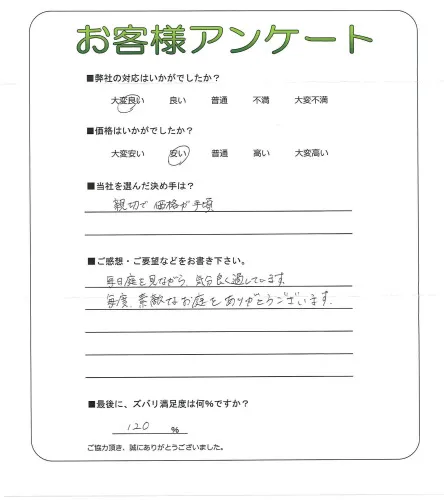 お客様アンケート
■弊社の対応はいかがでしたか？
大変良い 良い 普通 不満 大変不満
■価格はいかがでしたか？
大変安い 安い 普通 高い 大変高い
■当社を選んだ決め手は？
親切で 価格が手頃
■ご感想・ご要望などをお書き下さい。
毎日庭を見ながら、気分良く過しています。
毎度、素敵なお庭をありがとうございます。
■最後に、ズバリ満足度は何%ですか？
120 %
ご協力頂き、誠にありがとうございました。